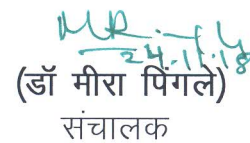 24.11.18
(डॉ मीरा पिंगले)
संचालक